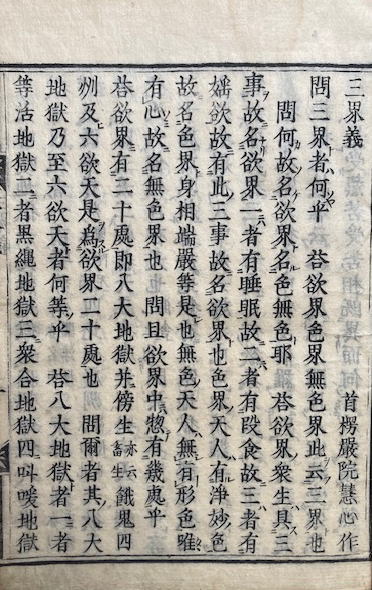 三界義　首楞嚴院慧心作
問三界者何乎　荅欲界色界無色界此云三界也
問何故名欲界名色無色耶　荅欲界衆生具三
事故名欲界一者有睡眠故二者有段食故三者有
婬欲故有此三事故名欲界也色界天人有淨妙色
故名色界身相端嚴等是也無色天人無有形色唯
有心故名無色界也　問且欲界中惣有幾處乎
荅欲界有二十處即八大地獄并傍生亦云畜生餓鬼四
洲及六欲天是爲欲界二十處也　問爾者其八大
地獄乃至六欲天者何等乎　荅八大地獄者一者
等活地獄二者黒繩地獄三衆合地獄四叫喚地獄